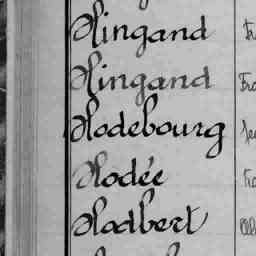 Hingand
Hingand
Hodebourg
Hodée
Hodbert